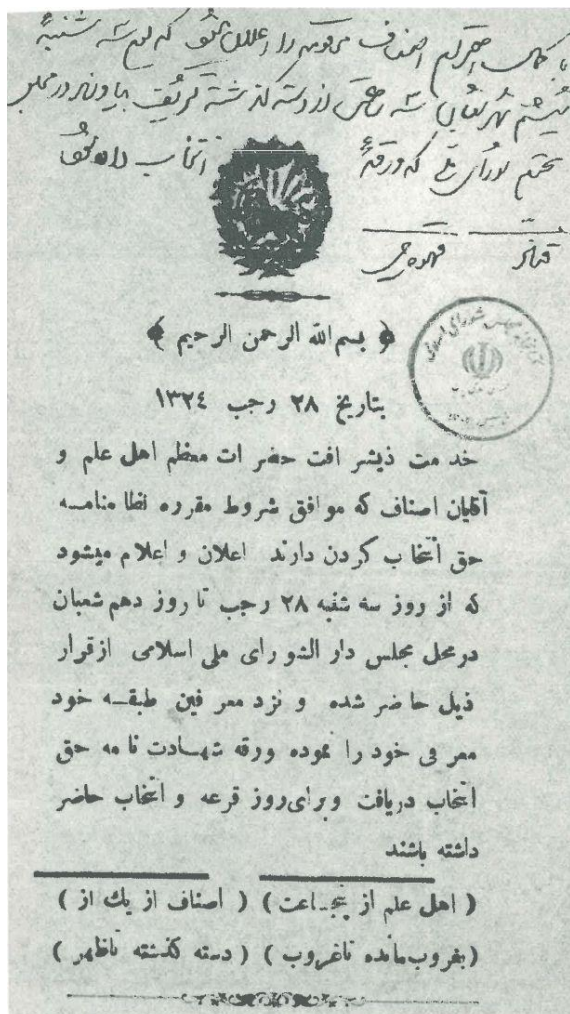 با کمال احترام اصناف مرقومه را اعلان که شنبه
هشتم شهر شعبان از دسته گذشته تشریف بیاورند در مجلس
محترم شورای ملی که ورقهٔ انتخاب داده
قناد قهوه‌چی
﴿ بسم الله الرحمن الرحیم ﴾
بتاریخ ۲۸ رجب ۱۳۲٤
خدمت ذیشرافت حضرات معظم اهل علم و
آقایان اصناف که موافق شروط مقرره نظامنامه
حق انتخاب کردن دارند اعلان و اعلام میشود
که از روز سه شنبه ۲۸ رجب تا روز دهم شعبان
در محل مجلس دار الشورای ملی اسلامی ازقرار
ذیل حاضر شده و نزد معرفین طبقه خود
معرفی خود را نموده ورقه شهادت نامه حق
انتخاب دریافت و برای روز قرعه و انتخاب حاضر
داشته باشند
( اهل علم از پنجساعت ) ( اصناف از یك از )
( بغروب مانده تاغروب ) ( دسته کذشته تاظهر )